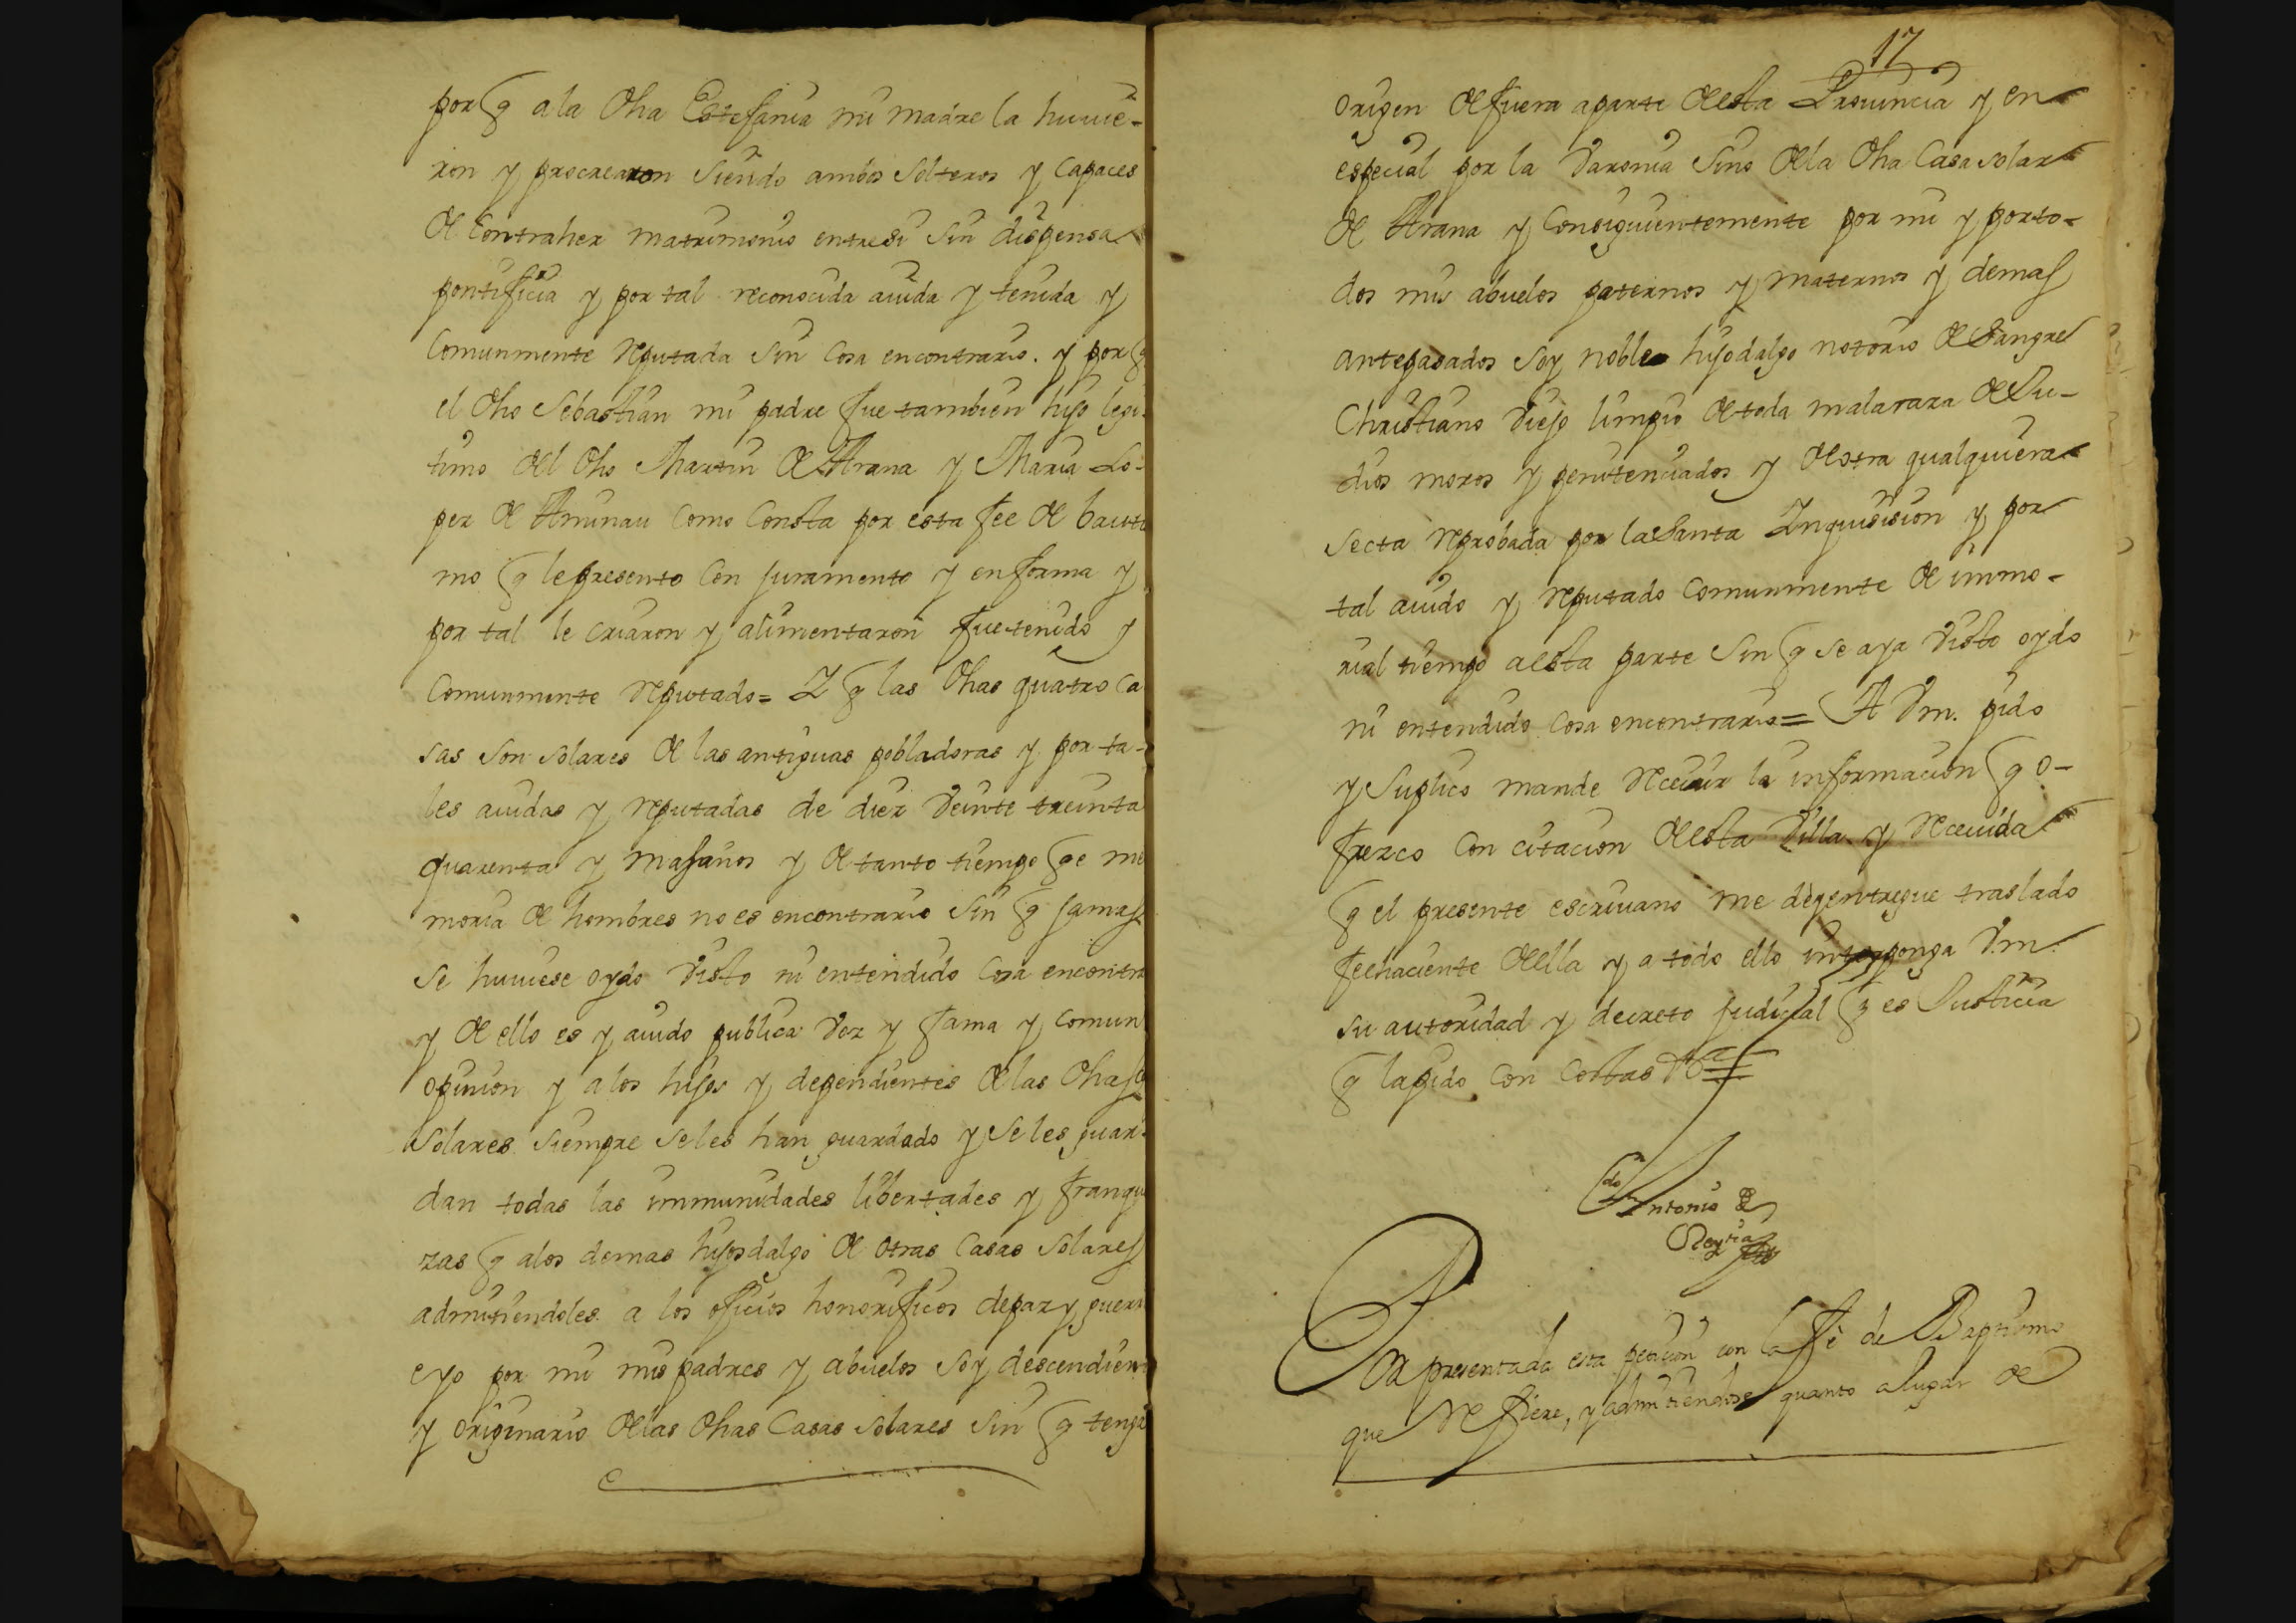 porq a la dha Estefania mi madre la huuie-
ron y procrearon siendo ambos solteros y capaces
de contraher matrimonio entresi sin dispensa
pontificia y por tal reconocida auida y tenida y
comunmente reputada sin cosa encontrario. y porq
el dho Sebastian mi padre fue tambien hijo legi-
timo del dho Martin de Arana y Maria Lo-
pez de como consta por esta fee de bautis
mo q le presento con juramento y en forma y
por tal le criaron y alimentaron fue tenido y
comunmente reputado= Y q las dhas quatro ca
sas son solares de las antiguas pobladoras y por ta-
les auidas y reputadas de diez veinte treinta
quarenta y mas años y de tanto tiempo qe me
moria de hombres no es encontrario sin q jamas
se huuiese oydo visto ni entendido cosa encontra
y de ello es y auido publica voz y fama y comun
opinion y a los hijos y dependientes de las dhas
solares siempre seles han guardado y se les guar-
dan todas las immunidades libertades y franque
zas q alos demas hijosdalgo de otras casas solares
admitiendoles a los oficios honorificos de paz y guerra
e yo por mi mis padres y abuelos soy descendiente
y originario de las dhas casas solares sin q tenga
17
origen de fuera aparte de esta Prouincia y en
especial por la varonia sino de la dha casa solar
de Arana y consiguientemente por mi y por to-
dos mis abuelos paternos y maternos y demas
antepasados soy noble hijodalgo notorio de sangre
christiano viejo limpio de toda mala raza de Ju-
dios moros y penitenciados y de otra qualquiera
secta reprobada por la Santa Inquisision y por
tal auido y reputado comunmente de immo-
rial tiempo a esta parte sin q se aya visto oydo
ni entendido cosa encontrario= A Vm. pido
y suplico mande receuir la informacion q o-
frezco con citacion de esta villa y receuida
q el presente escriuano me de y entregue traslado
feehaciente de ella y a todo ello interponga V.m.
su autoridad y decreto judicial q es Justicia
q la pido con costas
Antonio de
Por presentada esta peticion con la Fè de Baptismo
que refiere, y admitiendose quanto a lugar de